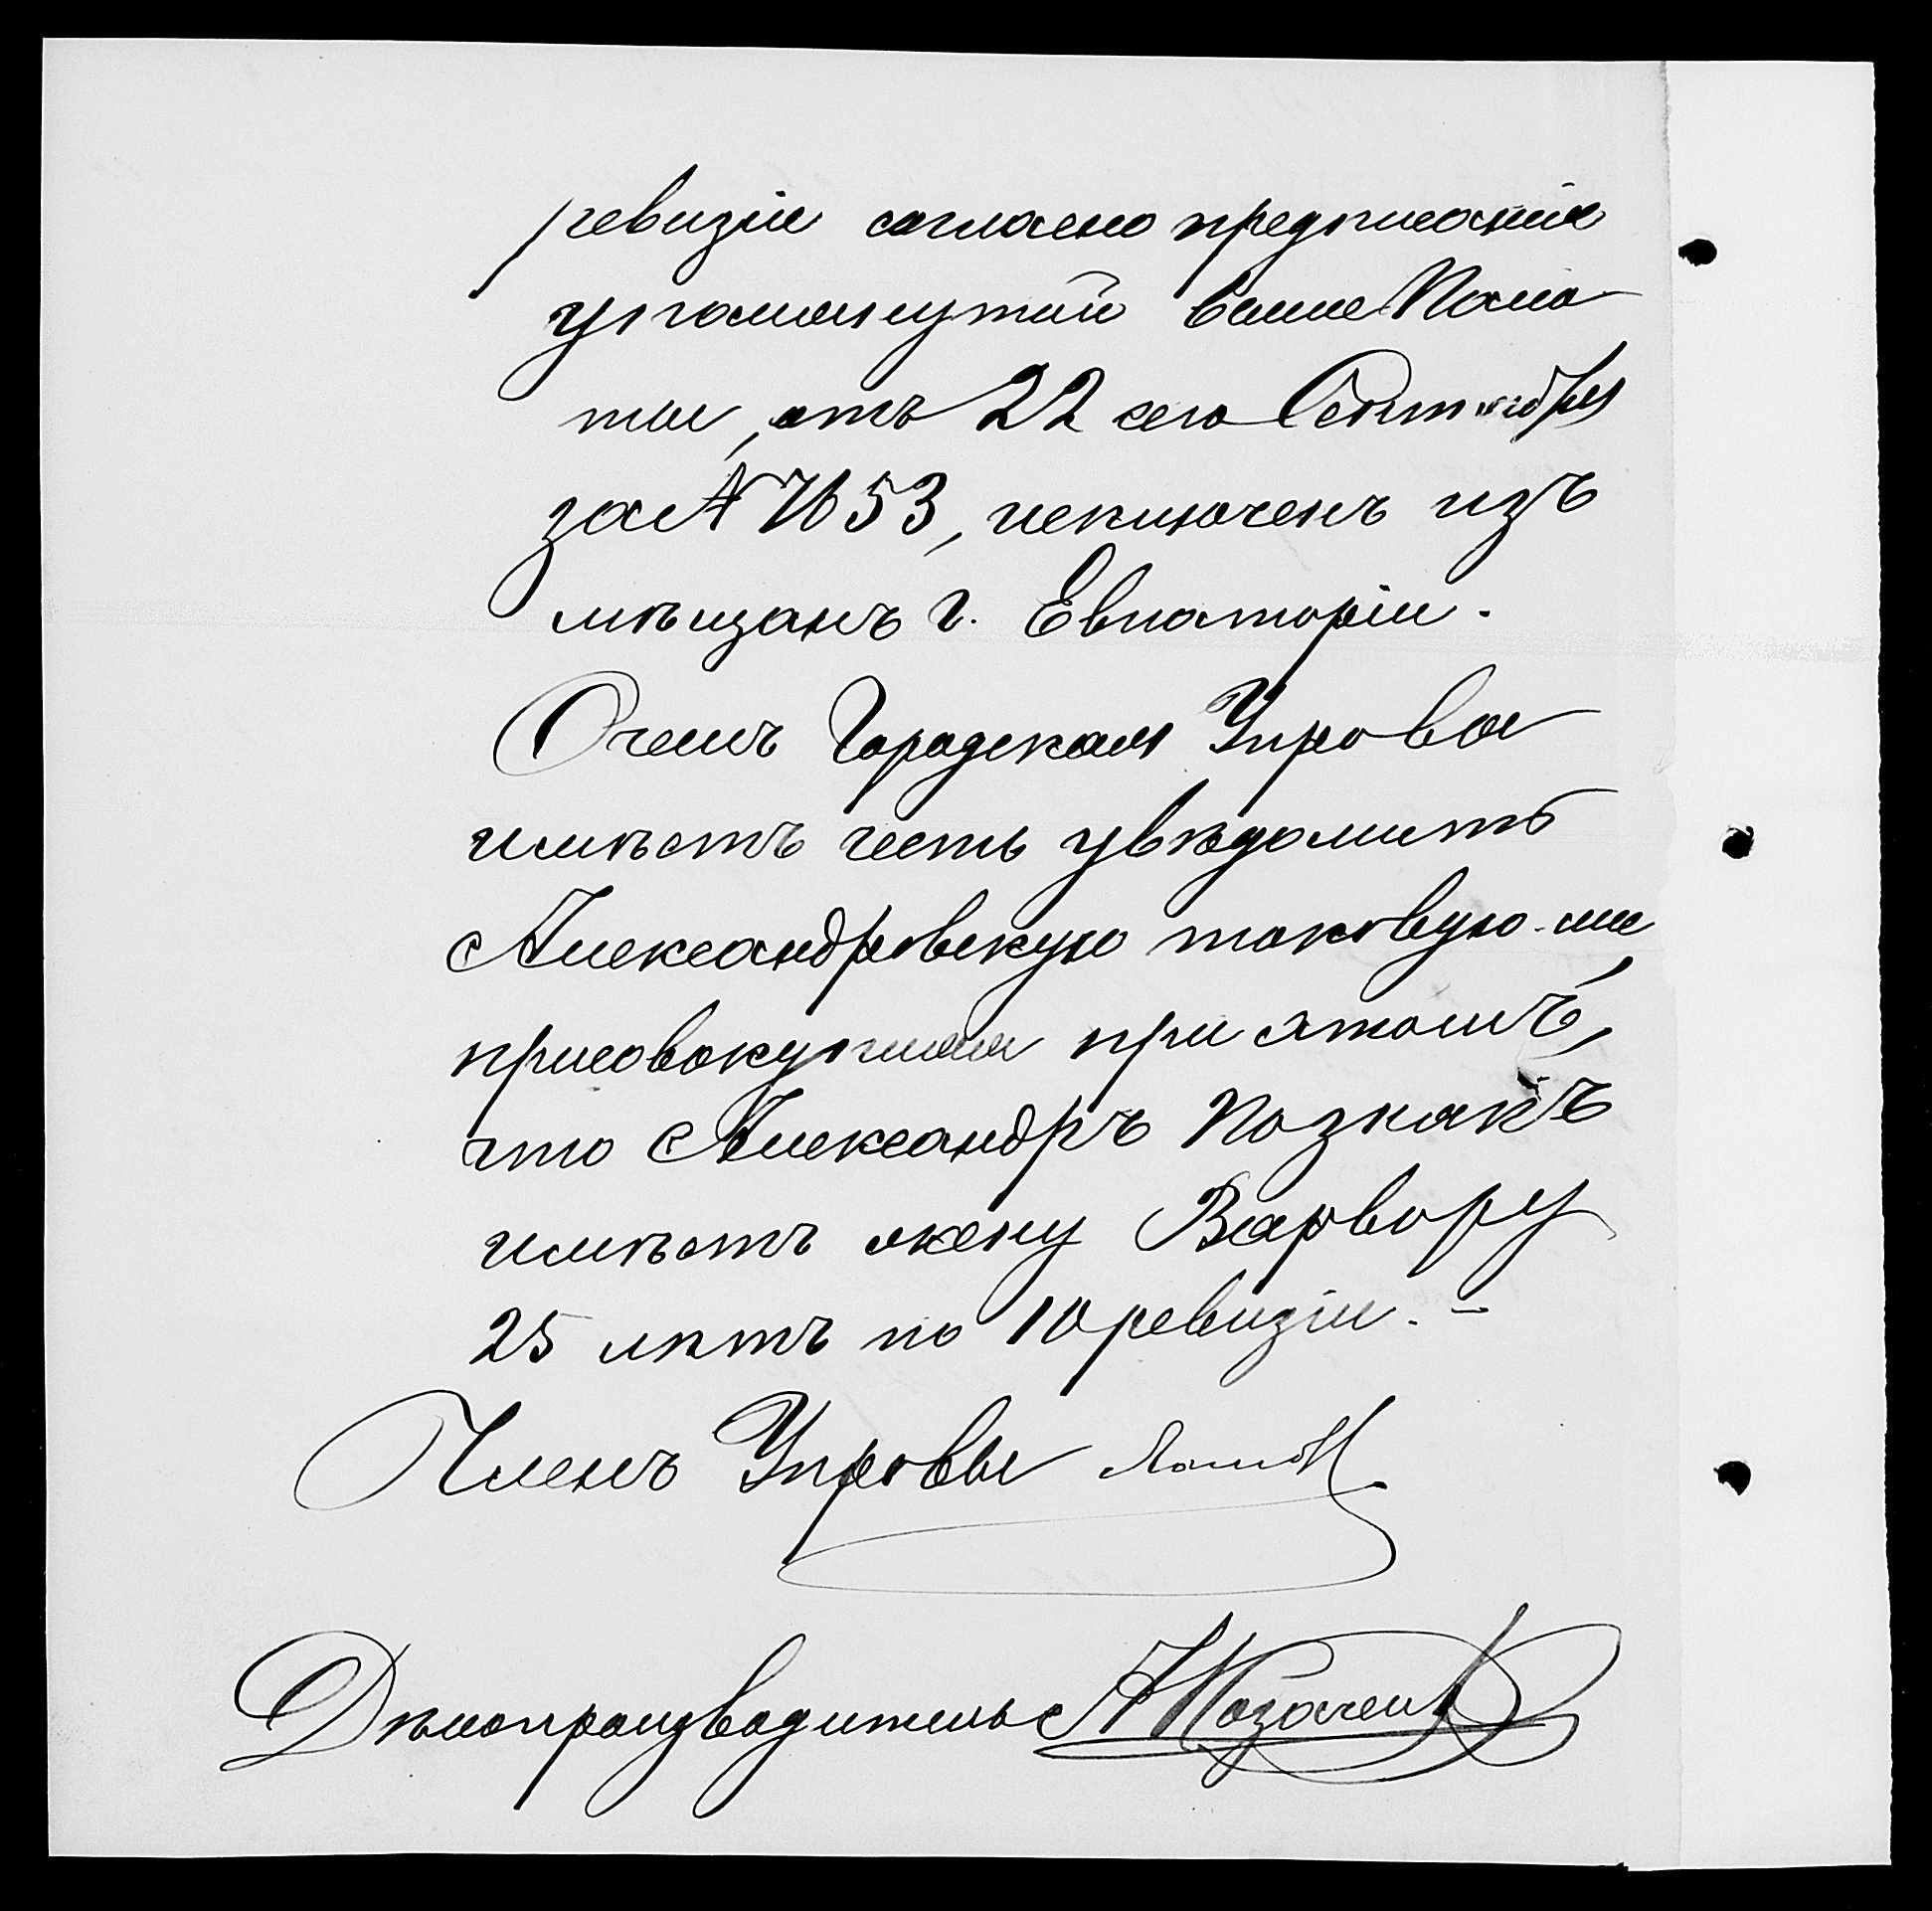 ревизіи согласно предписанія
упомянутой выше Пала
ты, отъ 22 сего Сентября
за № 7653, исключенъ изъ
мѣщанъ г. Евпаторіи.
О чемъ Городская Управа
имѣетъ честь увѣдомить
Александровскую таковую-же
присовокупляя при этомъ,
что Александръ Познакъ
имѣетъ жену Варвару
25 лѣтъ по 10 ревизіи. –
Членъ Управы
Дѣлопроизводитель А Козачек